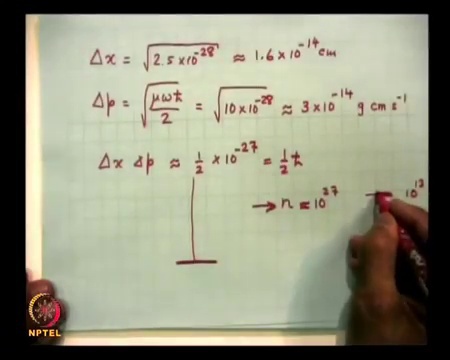 Δx = √2.5×10⁻²⁸ ≈ 1.6×10⁻¹⁴ cm
Δp = √(μωℏ/2) = √10×10⁻²⁸ ≈ 3×10⁻¹⁴ g cm s⁻¹
Δx Δp ≈ ½ × 10⁻²⁷ = ½ ℏ
→ n ≈ 10²⁷ 10¹³
NPTEL